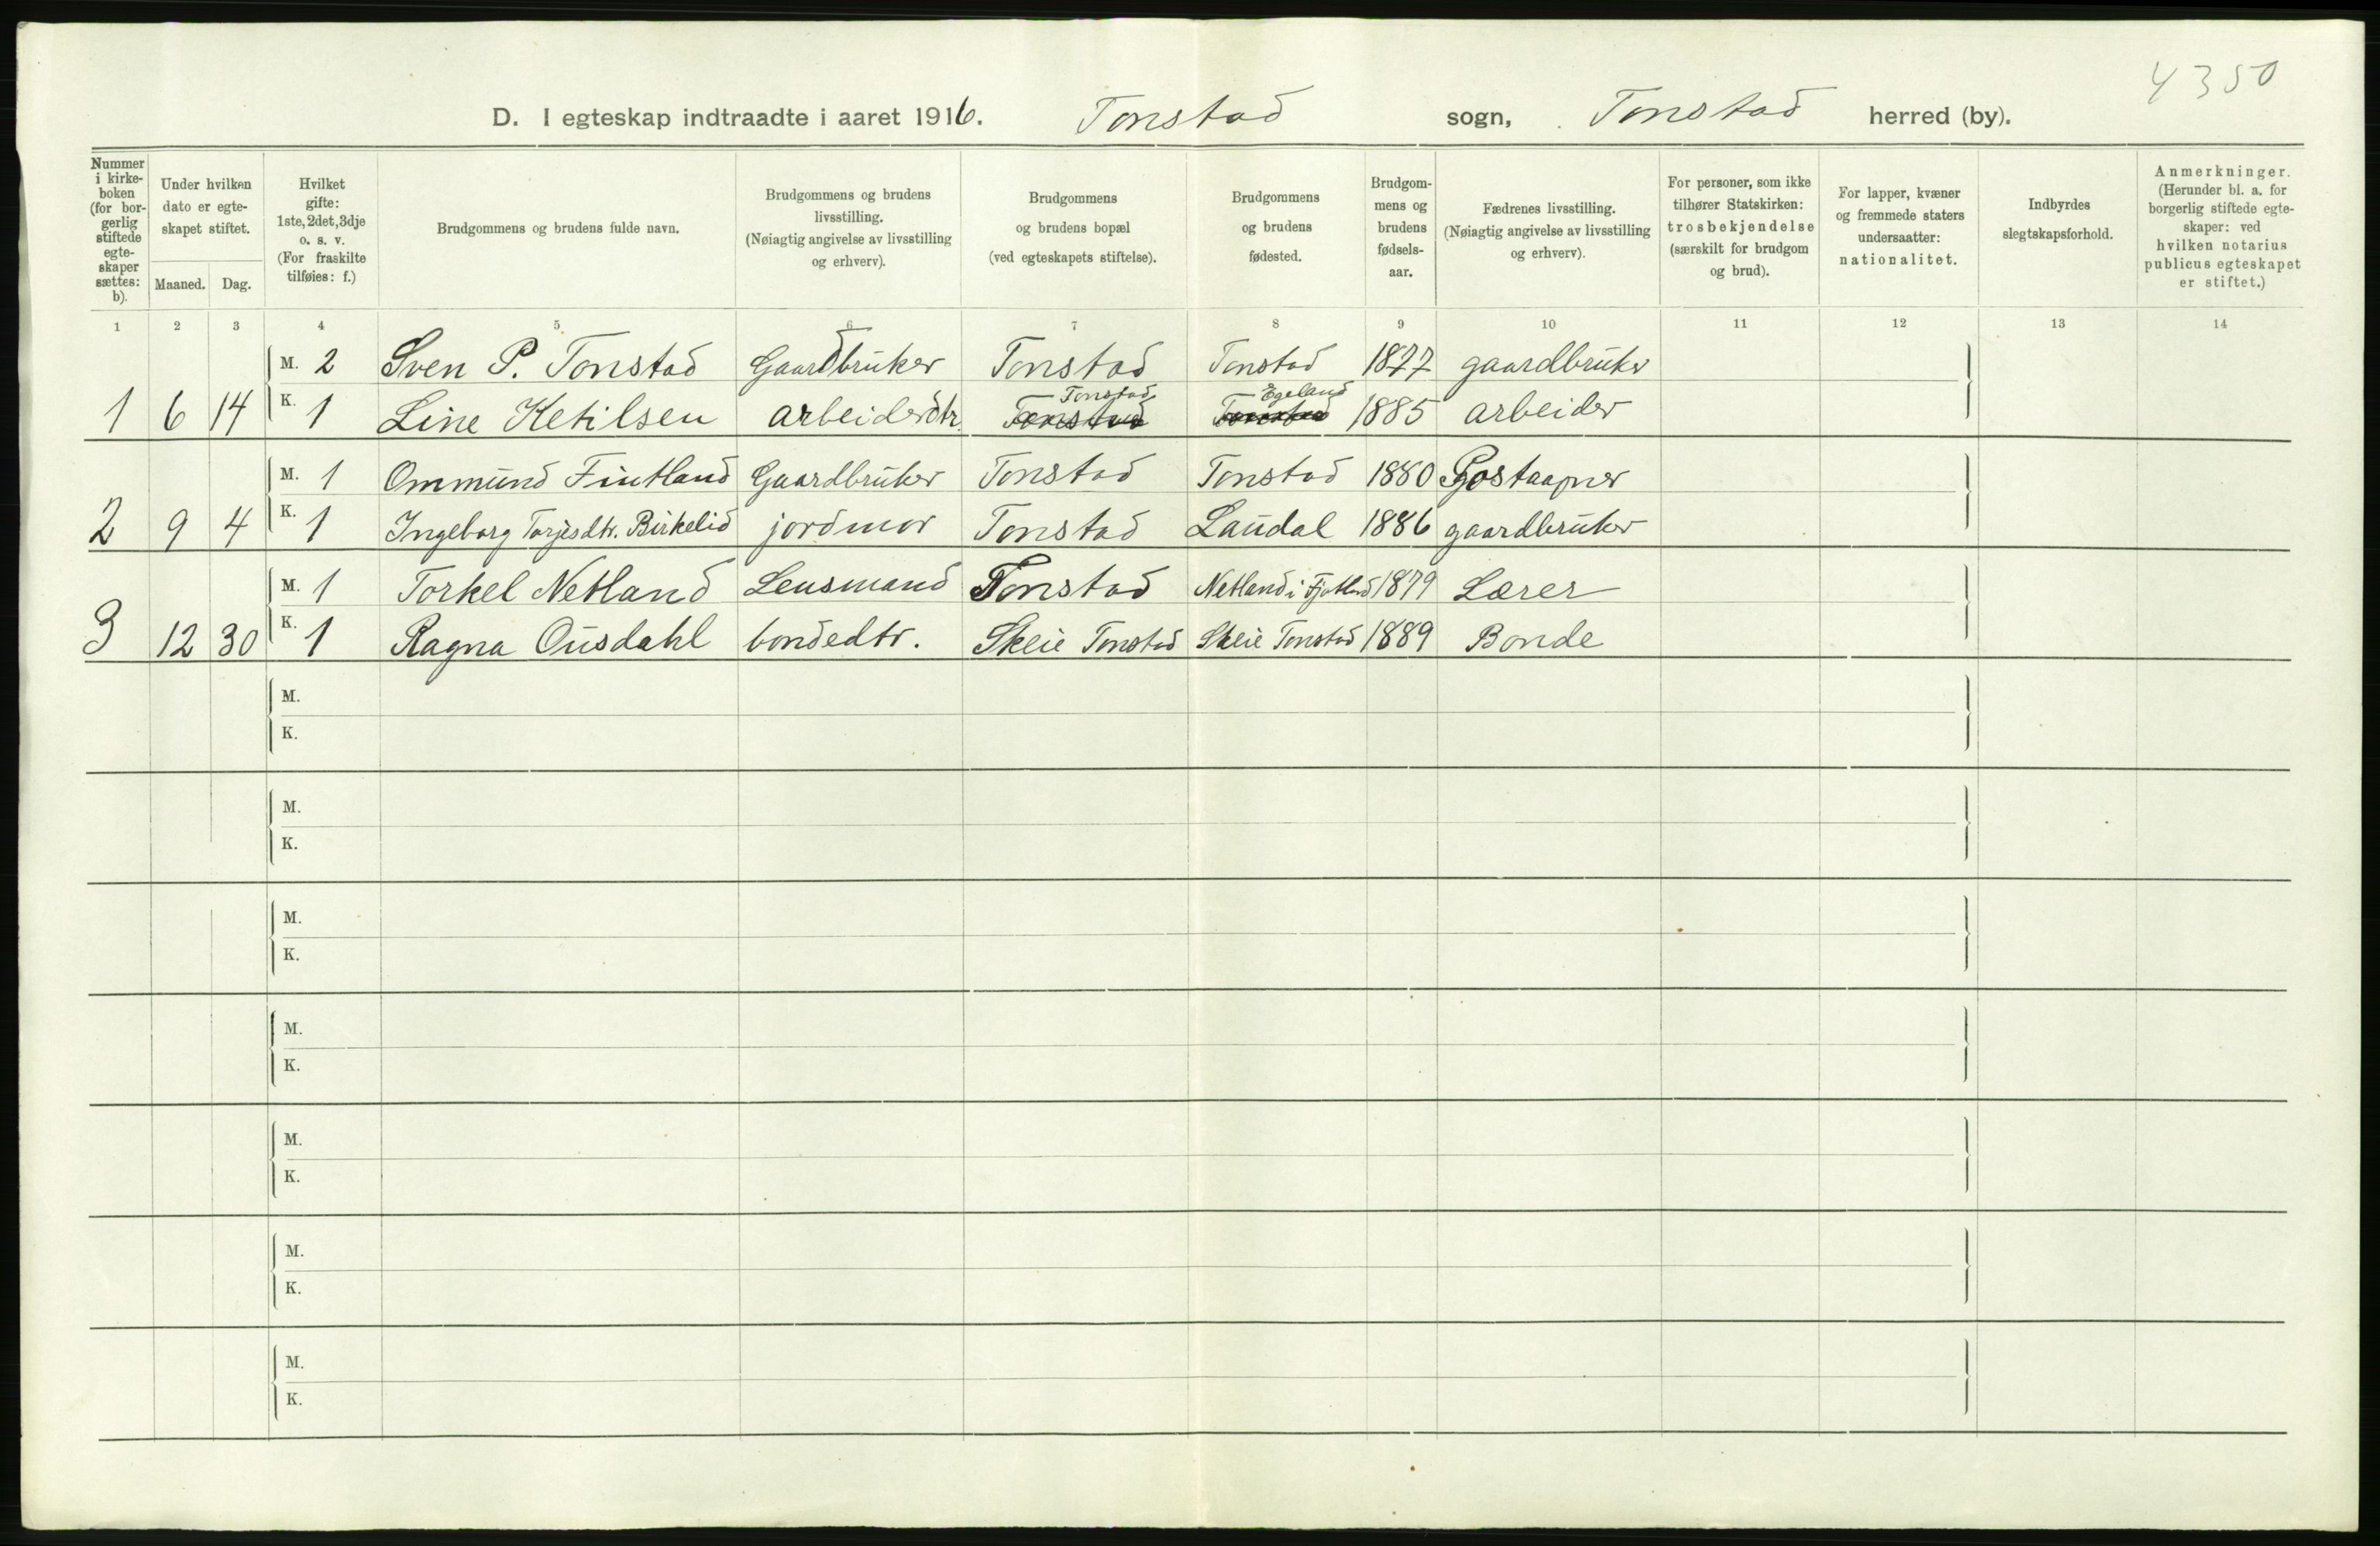 4350
D. I egteskap indtraadte i aaret 1916. Tonstad sogn, Tonstad herred (by).
Nummer i kirke-boken (for bor-gerlig stiftede egte-skaper sættes: b).
Under hvilken dato er egte-skapet stiftet.
Maaned. Dag.
Hvilket gifte: 1ste, 2det, 3dje o. s. v. (For fraskilte tilføies: f.)
Brudgommens og brudens fulde navn.
Brudgommens og brudens livsstilling. (Nøiagtig angivelse av livsstilling og erhverv).
Brudgommens og brudens bopæl (ved egteskapets stiftelse).
Brudgommens og brudens fødested.
Brudgom-mens og brudens fødsels-aar.
Fædrenes livsstilling. (Nøiagtig angivelse av livsstilling og erhverv).
For personer, som ikke tilhører Statskirken: trosbekjendelse (særskilt for brudgom og brud).
For lapper, kvæner og fremmede staters undersaatter: nationalitet.
Indbyrdes slegtskapsforhold.
Anmerkninger. (Herunder bl. a. for borgerlig stiftede egte-skaper: ved hvilken notarius publicus egteskapet er stiftet.)
1 2 3 4 5 6 7 8 9 10 11 12 13 14
M. 2 Sven P. Tonstad Gaardbruker Tonstad Tonstad 1877 gaardbruker
Tonstad Egeland
1 6 14 K. 1 Line Ketilsen arbeiderdtr. Tonstad Tonstad 1885 arbeider
M. 1 Ommund Fintland Gaardbruker Tonstad Tonstad 1880 Postaapner
2 9 4 K. 1 Ingeborg Torjesdtr. Birkelid jordmor Tonstad Laudal 1886 gaardbruker
M. 1 Torkel Netland Lensmand Tonstad Netland i Fjotland 1879 Lærer
3 12 30 K. 1 Ragna Ousdahl bondedtr. Skeie Tonstad Skeie Tonstad 1889 Bonde
M.
K.
M.
K.
M.
K.
M.
K.
M.
K.
M.
K.
M.
K.